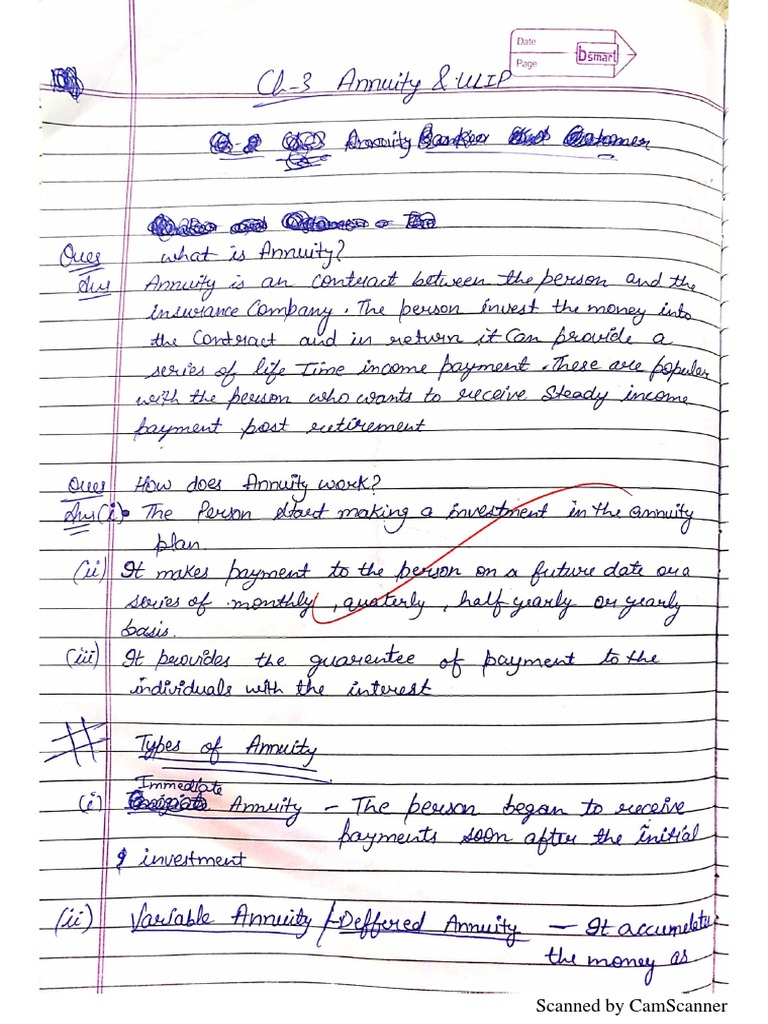 Date
Page
bsmart
Ch-3 Annuity & ULIP
Annuity Banker Customer
Ques what is Annuity?
Ans Annuity is an contract between the person and the
insurance Company. The person invest the money into
the Contract and in return it can provide a
series of life Time income payment. These are popular
with the person who wants to receive Steady income
payment post retirement
Ques How does Annuity work?
Ans (i) The Person start making a investment in the annuity
plan.
(ii) It makes payment to the person on a future date or a
series of monthly, quaterly, half yearly or yearly
basis.
(iii) It provides the guarentee of payment to the
individuals with the interest
# Types of Annuity
Immediate
(i) Annuity - The person began to receive
payments soon after the initial
investment
(ii) Variable Annuity / Deffered Annuity - It accumelate
the money as
Scanned by CamScanner